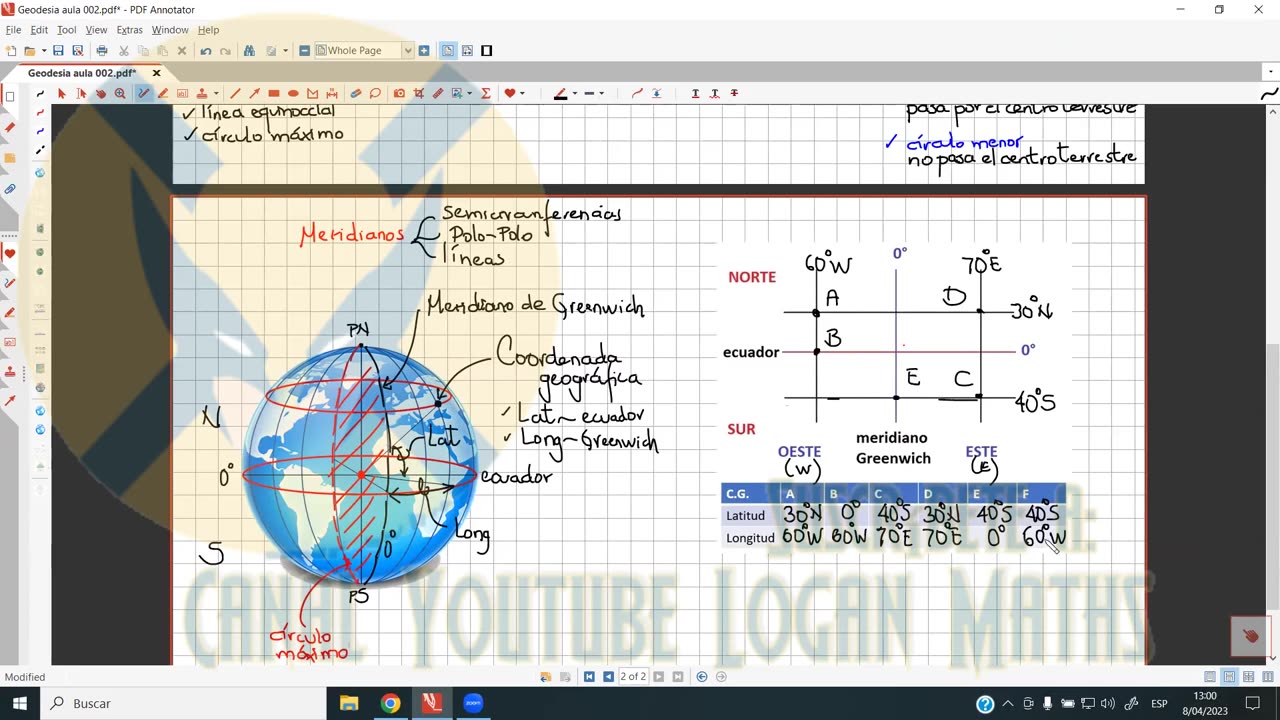 Geodesia aula 002.pdf* - PDF Annotator
File Edit Tool View Extras Window Help
Whole Page
Geodesia aula 002.pdf*
✓ línea equinoccial
✓ círculo máximo
pasa por el centro terrestre
✓ círculo menor
no pasa el centro terrestre
Meridianos
Semicircunferencias
Polo-Polo
líneas
Meridiano de Greenwich
PN
Coordenada
geográfica
✓ Lat ~ ecuador
✓ Long ~ Greenwich
N
Lat
0°
ecuador
Long
0°
S
PS
círculo
máximo
60°W
0°
70°E
NORTE
A
D
30°N
B
ecuador
0°
E
C
40°S
SUR
OESTE
(W)
meridiano
Greenwich
ESTE
(E)
C.G. A B C D E F
Latitud 30°N 0° 40°S 30°N 40°S 40°S
Longitud 60°W 60W 70°E 70°E 0° 60°W
Canal Youtube Logan Maths
Modified
2 of 2
Buscar
zoom
ESP
13:00
8/04/2023